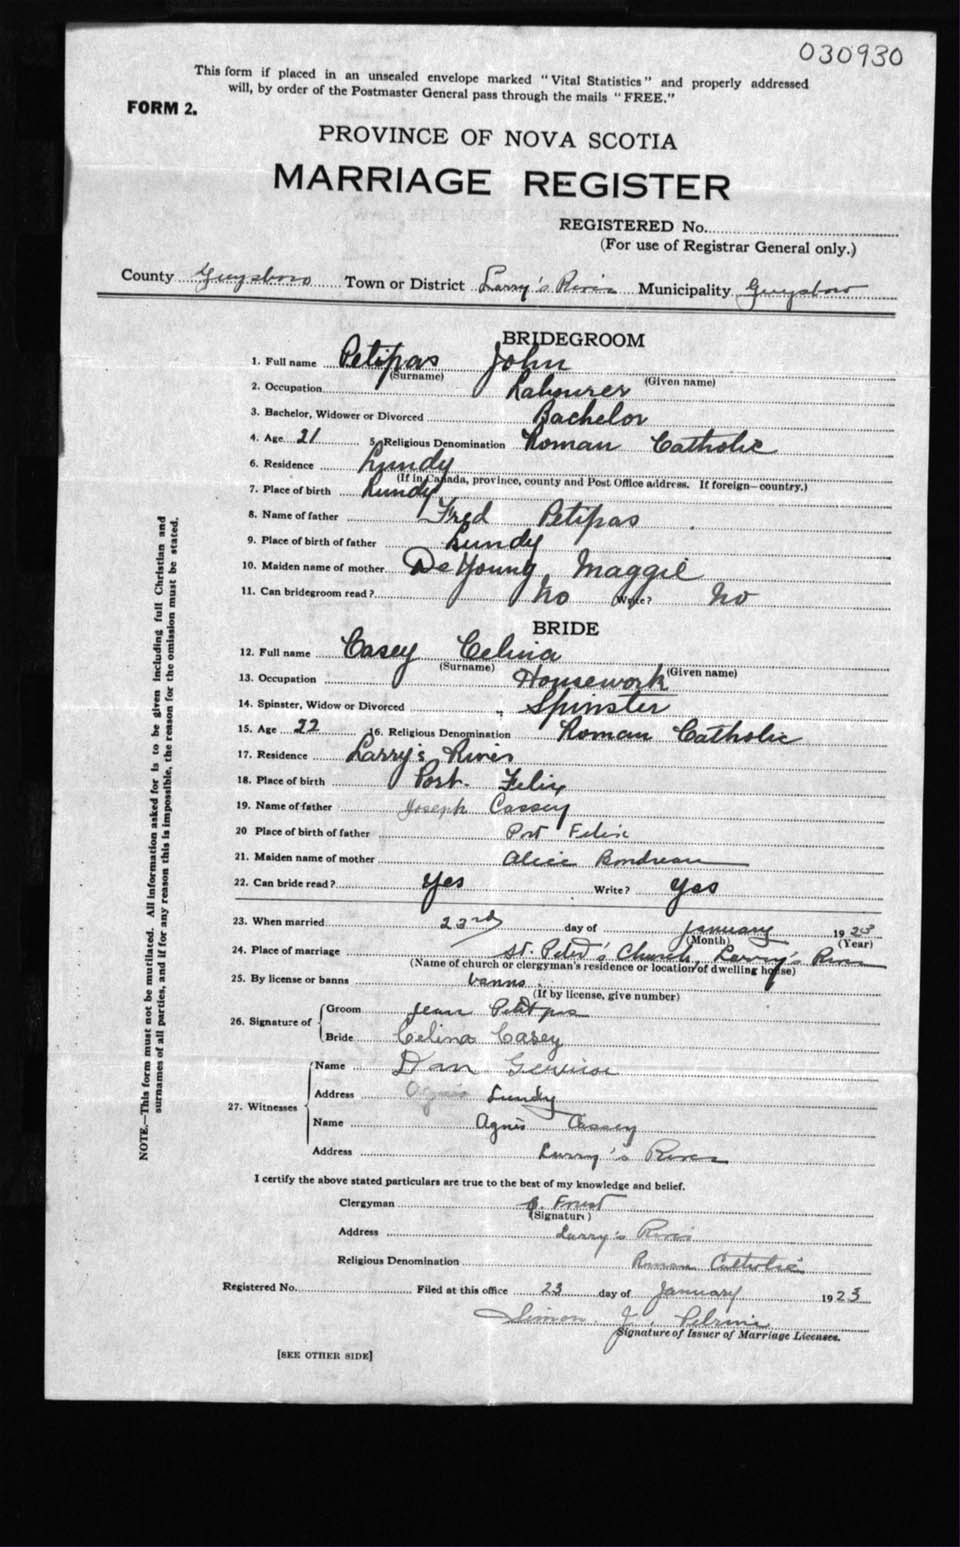 030930
This form if placed in an unsealed envelope marked "Vital Statistics" and properly addressed
will, by order of the Postmaster General pass through the mails "FREE."
FORM 2.
PROVINCE OF NOVA SCOTIA
MARRIAGE REGISTER
REGISTERED No.
(For use of Registrar General only.)
County Guysboro Town or District Larry's River Municipality Guysboro
BRIDEGROOM
1. Full name Petipas John
(Surname) (Given name)
2. Occupation Labourer
3. Bachelor, Widower or Divorced Bachelor
4. Age 21 5. Religious Denomination Roman Catholic
6. Residence Lundy
(If in Canada, province, county and Post Office address. If foreign—country.)
7. Place of birth Lundy
8. Name of father Fred Petipas
9. Place of birth of father Lundy
10. Maiden name of mother DeYoung, Maggie
11. Can bridegroom read? No Write? No
BRIDE
12. Full name Casey Celina
(Surname) (Given name)
13. Occupation Housework
14. Spinster, Widow or Divorced " Spinster
15. Age 22 16. Religious Denomination Roman Catholic
17. Residence Larry's River
18. Place of birth Port Felix
19. Name of father Joseph Cassey
20 Place of birth of father Port Felix
21. Maiden name of mother Alice Bondreau
22. Can bride read? Yes Write? Yes
23. When married 23rd day of January 1923
(Month) (Year)
24. Place of marriage St. Peter's Church, Larry's River
(Name of church or clergyman's residence or location of dwelling house)
25. By license or banns banns
(If by license, give number)
26. Signature of Groom Jean Petitpas
Bride Celina Casey
27. Witnesses
Name Dan
Address Agnis Lundy
Name Agnis Cassey
Address Larry's River
I certify the above stated particulars are true to the best of my knowledge and belief.
Clergyman Forest
(Signature)
Address Larry's River
Religious Denomination Roman Catholic
Registered No. Filed at this office 23 day of January 1923
Simon J. Pelrine
Signature of Issuer of Marriage Licenses.
[SEE OTHER SIDE]
NOTE.—This form must not be mutilated. All information asked for is to be given including full Christian and
surnames of all parties, and if for any reason this is impossible, the reason for the omission must be stated.